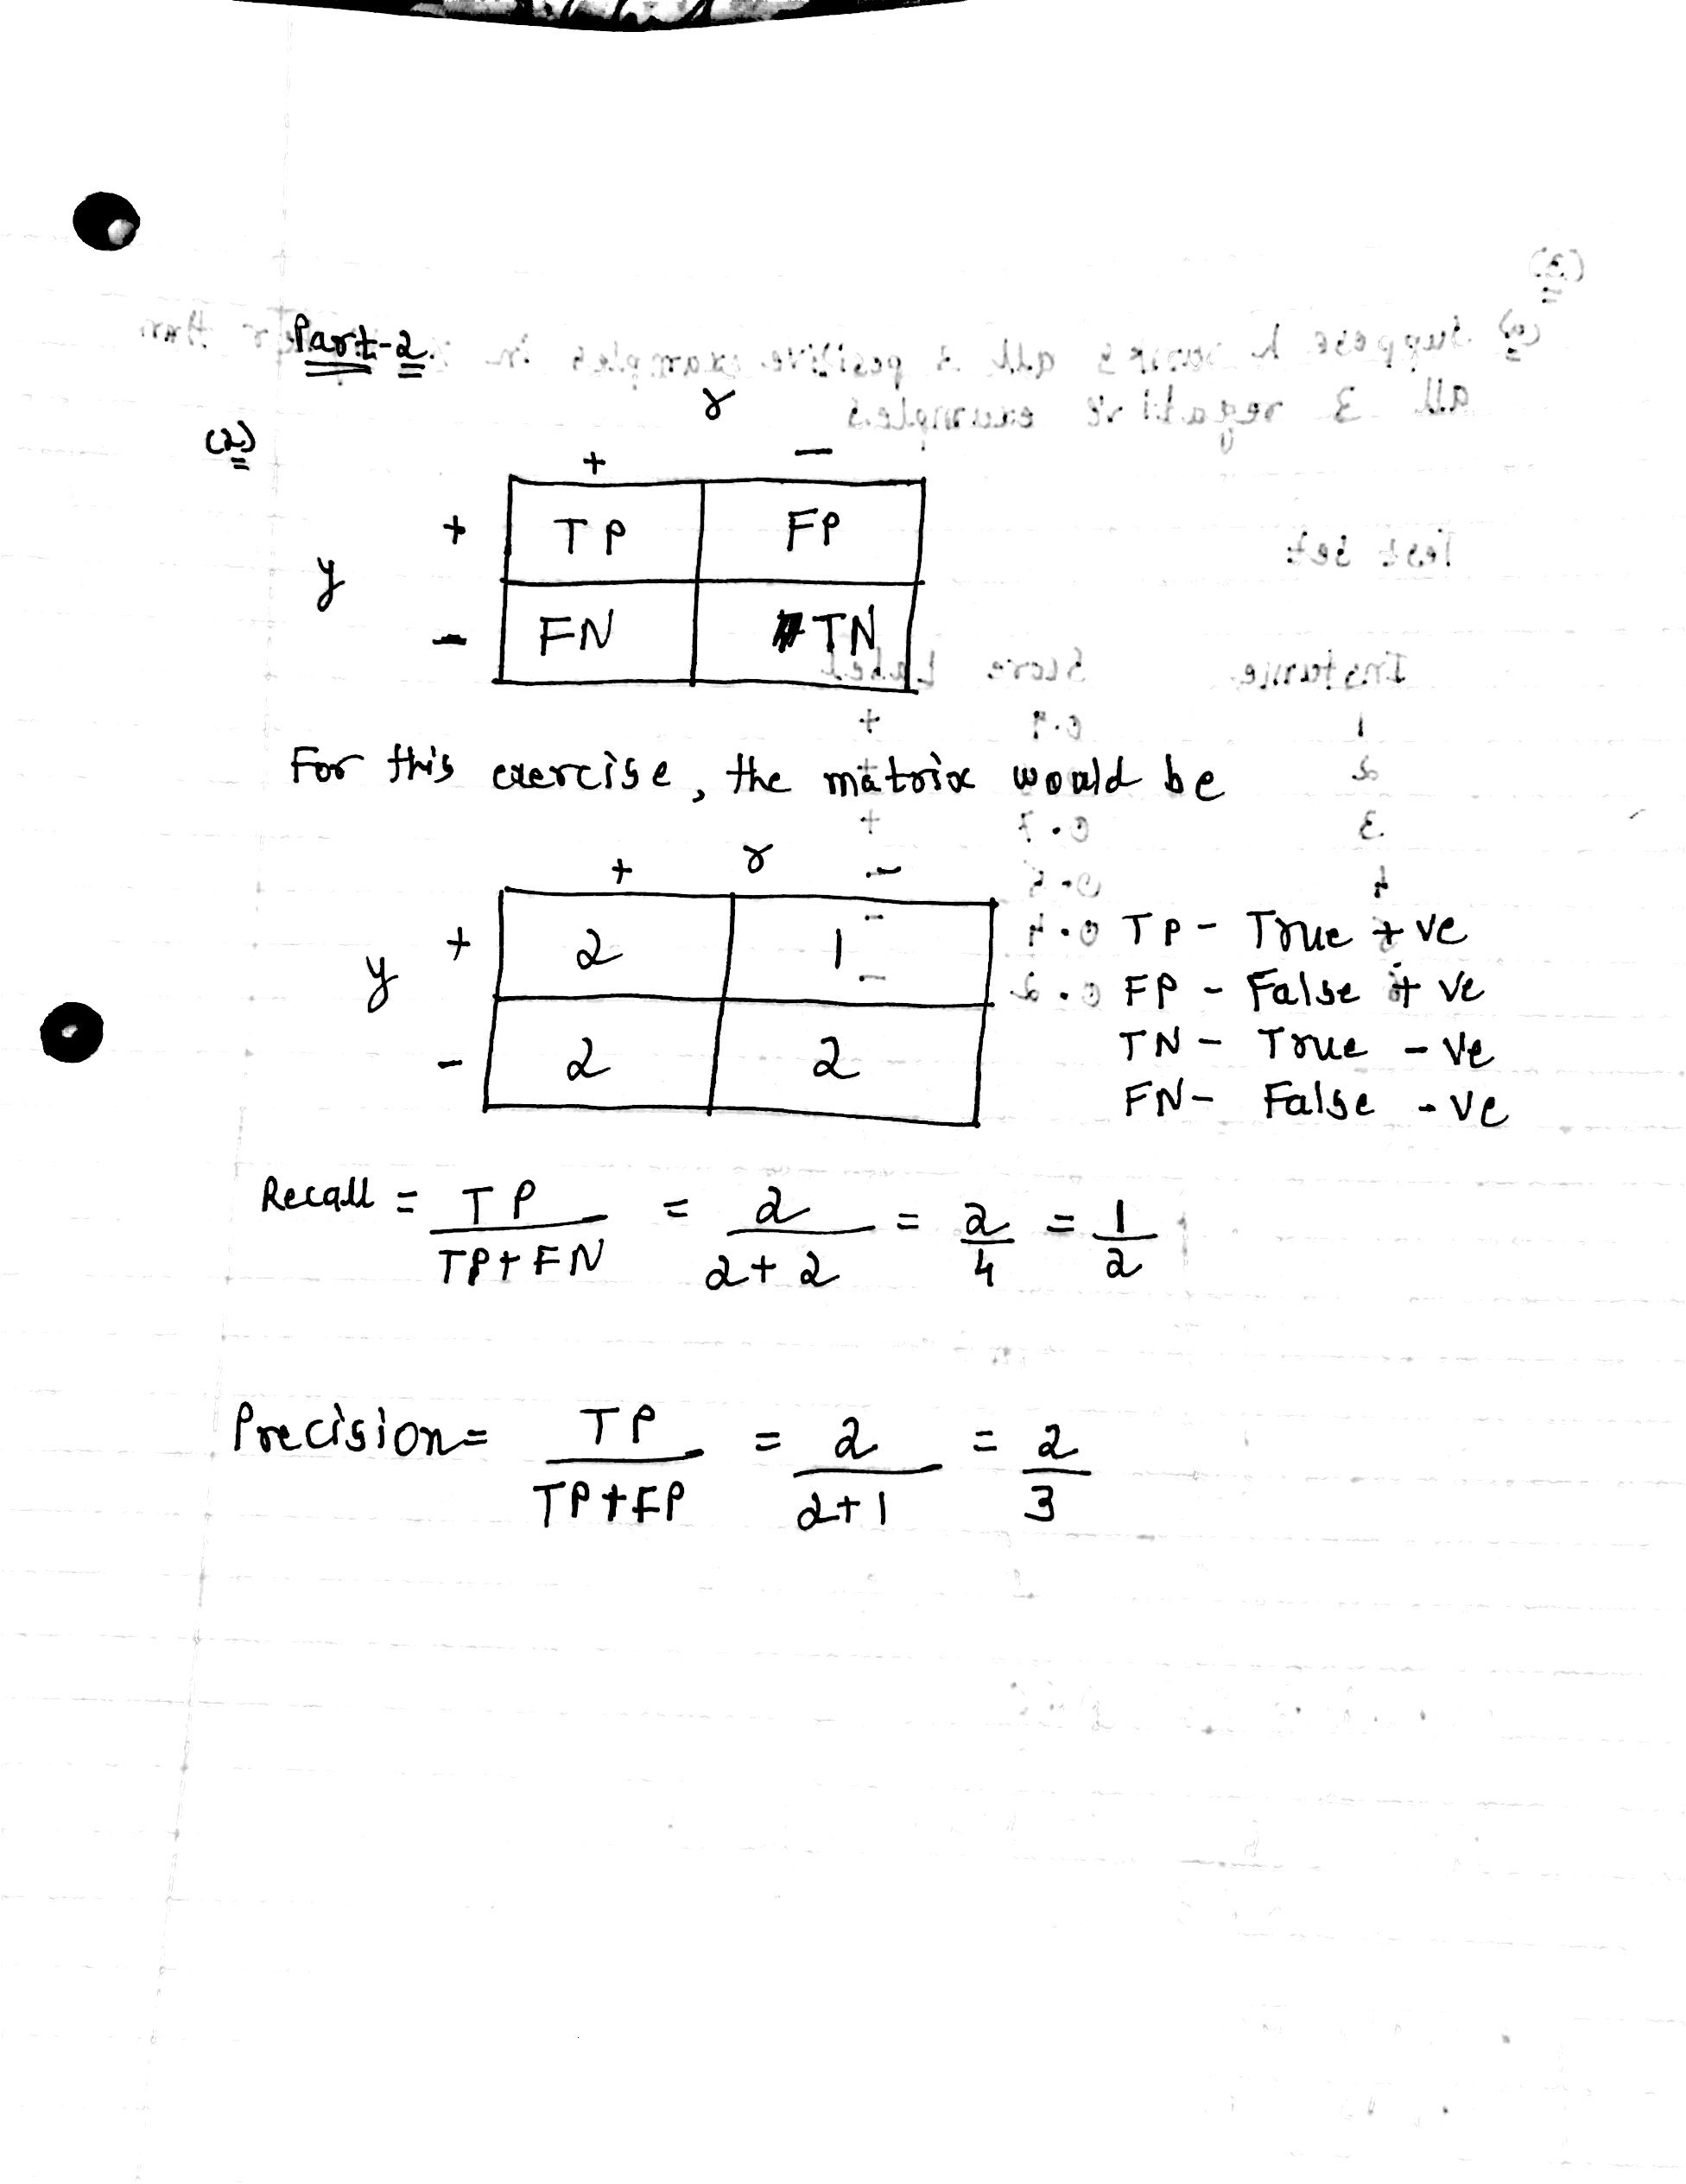 Part-2.
(2)
r
+ -
+ TP FP
y
- FN TN
For this exercise, the matrix would be
r
+ -
+ 2 1
y
- 2 2
TP - True +ve
FP - False +ve
TN - True -ve
FN - False -ve
Recall = TP / TP+FN = 2 / 2+2 = 2/4 = 1/2
Precision = TP / TP+FP = 2 / 2+1 = 2/3